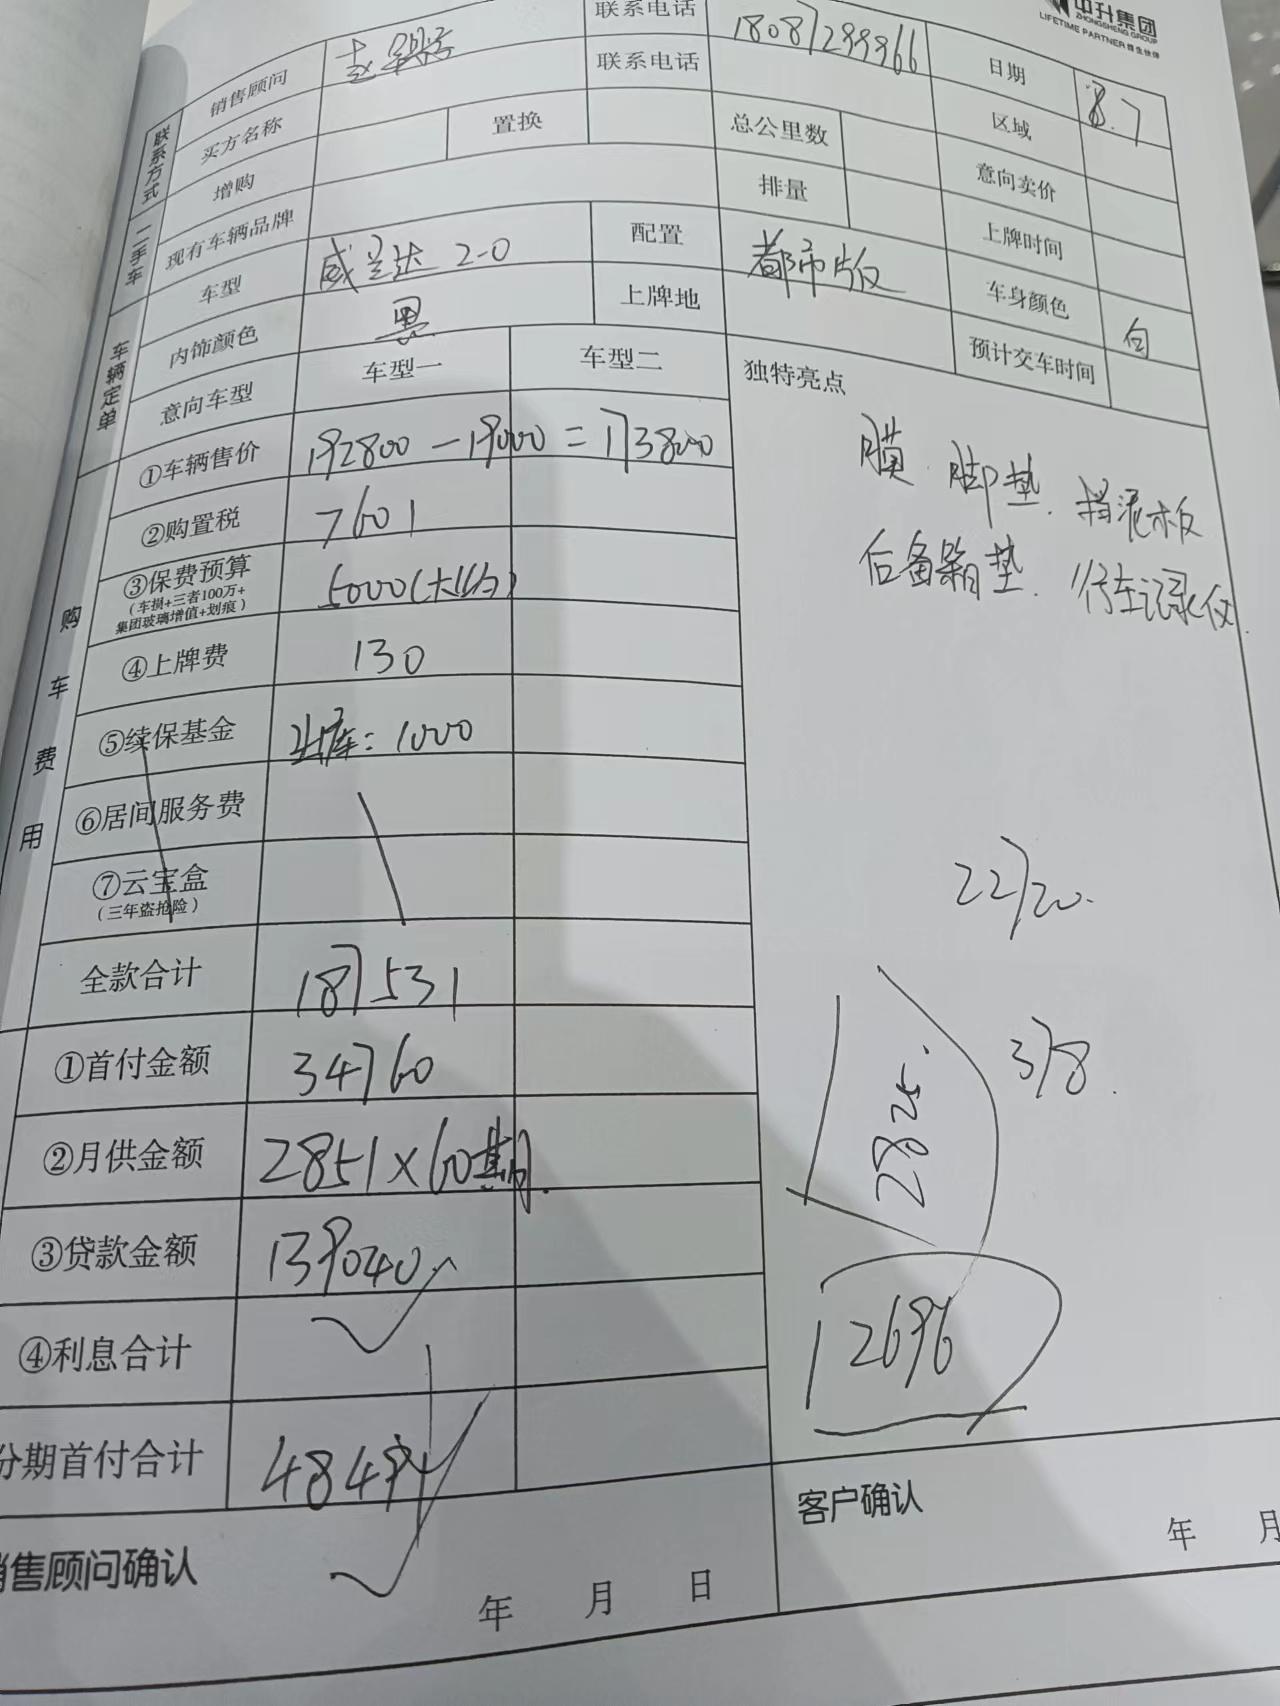 中升集团
ZHONGSHENG GROUP
LIFETIME PARTNER 终生伙伴
联系方式
销售顾问 联系电话 18087299966 日期 8.7
买方名称 联系电话 区域
二手车
增购 置换 总公里数 意向卖价
现有车辆品牌 排量 上牌时间
车辆定单
车型 威兰达 2-0 配置 都市版 车身颜色 白
内饰颜色 黑 上牌地 预计交车时间
意向车型 车型一 车型二 独特亮点
购车费用
①车辆售价 192800-19000=173800
膜 脚垫. 挡泥板
②购置税 7601
后备箱垫. 行车记录仪.
③保费预算 5000(大约)
(车损+三者100万+
集团玻璃增值+划痕)
④上牌费 130
⑤续保基金 出库: 1000
⑥居间服务费
22720.
⑦云宝盒
(三年盗抢险)
全款合计 187531
①首付金额 34760
378.
2825.
②月供金额 2851×60期.
③贷款金额 139040
④利息合计
12696
分期首付合计 48494
销售顾问确认
年 月 日
客户确认
年 月